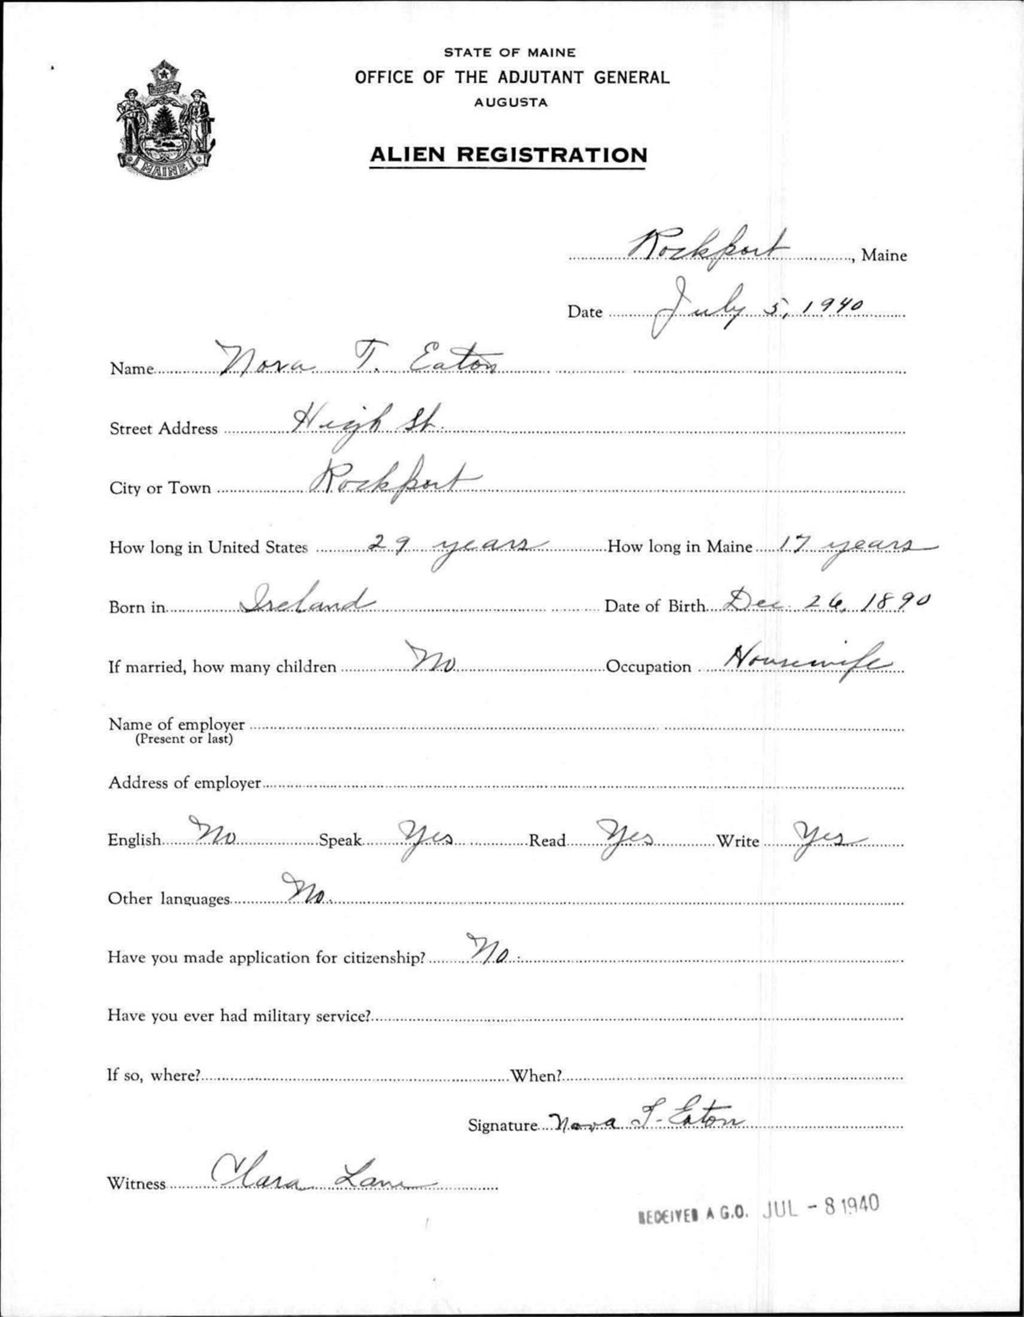 STATE OF MAINE
OFFICE OF THE ADJUTANT GENERAL
AUGUSTA
ALIEN REGISTRATION
MAINE
Rockport, Maine
Date July 5, 1940
Name Nora T. Eaton
Street Address High St.
City or Town Rockport
How long in United States 29 years How long in Maine 17 years
Born in Ireland Date of Birth Dec. 26, 1890
If married, how many children No Occupation Housewife
Name of employer
(Present or last)
Address of employer
English No Speak Yes Read Yes Write Yes
Other languages No.
Have you made application for citizenship? No.
Have you ever had military service?
If so, where? When?
Signature Nora T. Eaton
Witness Clara Lane
RECEIVED A.G.O. JUL - 8 1940